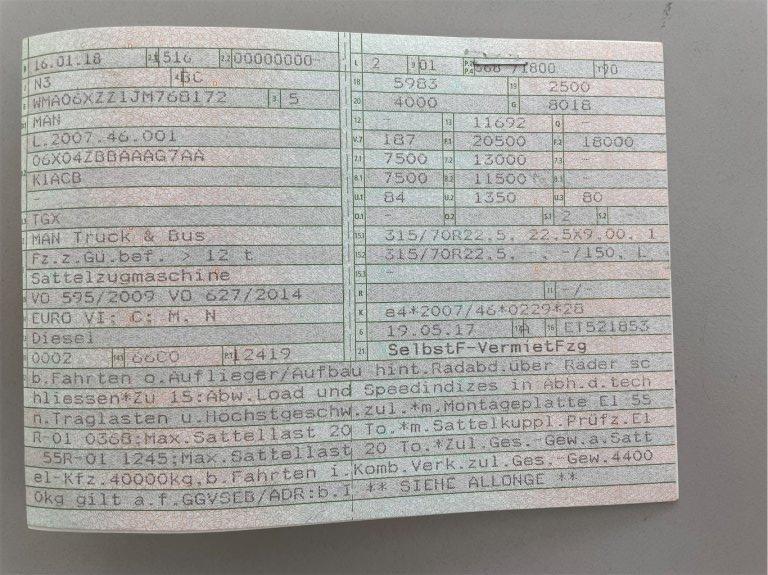 16.01.18 2.1 1516 2.2 00000000-
N3 4 BC
WMA06XZZ1JM768172 3 5
MAN
L.2007.46.001
06X04ZBBAAAG7AA
K1ACB
-
TGX
MAN Truck & Bus
Fz.z.Gü.bef. > 12 t
Sattelzugmaschine
VO 595/2009 VO 627/2014
EURO VI; C; M, N
Diesel
0002 14.1 66C0 P.1 12419
L 2 9 01 P.2 P.4 71800 T 90
18 5983 19 2500
20 4000 G 8018
12 - 13 11692 Q
V.7 187 F.1 20500 F.2 18000
7.1 7500 7.2 13000 7.3 -
8.1 7500 8.2 11500 8.3 -
U.1 84 U.2 1350 U.3 80
O.1 - O.2 S.1 2 S.2 -
15.1 315/70R22.5, 22.5X9.00, 1
15.2 315/70R22.5, -, -/150, L
15.3 -
R 11 -/-
K e4*2007/46*0229*28
6 19.05.17 16 ET521853
21 SelbstF-VermietFzg
b.Fahrten o.Auflieger/Aufbau hint.Radabd.über Räder sc
hliessen*Zu 15:Abw.Load und Speedindizes in Abh.d.tech
n.Traglasten u.Höchstgeschw.zul.*m.Montageplatte E1 55
R-01 0368:Max.Sattellast 20 To.*m.Sattelkuppl.Prüfz.E1
55R-01 1245:Max.Sattellast 20 To.*Zul.Ges.-Gew.a.Satt
el-Kfz.40000kg,b.Fahrten i.Komb.Verk.zul.Ges.-Gew.4400
0kg gilt a.f.GGVSEB/ADR:b.I ** SIEHE ALLONGE **